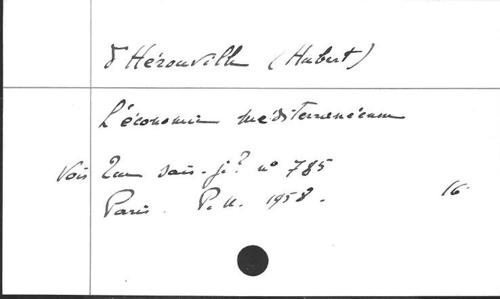 d'Hérouville (Hubert)
L'économie méditerranéenne
Vois Que sais-je? n° 785
Paris. P.U. 1958. 16